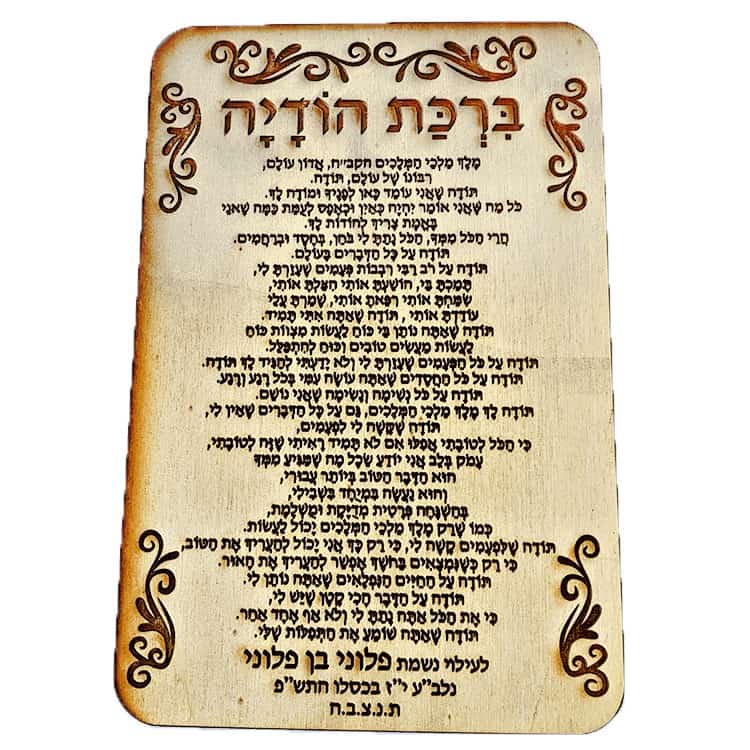 בִּרְכַּת הוֹדָיָה
מֶלֶךְ מַלְכֵי הַמְּלָכִים הקב"ה, אֲדוֹן עוֹלָם,
רִבּוֹנוֹ שֶׁל עוֹלָם, תּוֹדָה.
תּוֹדָה שֶׁאֲנִי עוֹמֵד כָּאן לְפָנֶיךָ וּמוֹדֶה לְךָ.
כֹּל מַה שֶּׁאֲנִי אוֹמֵר יִהְיֶה כְּאַיִן וּכְאֶפֶס לְעֻמַּת כַּמָּה שֶׁאֲנִי
בֶּאֱמֶת צָרִיךְ לְהוֹדוֹת לְךָ.
הֲרֵי הַכֹּל מִמְּךָ, הַכֹּל נָתַתָּ לִי בְּחֵן, בְּחֶסֶד וּבְרַחֲמִים.
תּוֹדָה עַל כָּל הַדְּבָרִים בָּעוֹלָם.
תּוֹדָה עַל רֹב רִבֵּי רִבְבוֹת פְּעָמִים שֶׁעָזַרְתָּ לִי,
תָּמַכְתָּ בִּי, הוֹשַׁעְתָּ אוֹתִי הִצַּלְתָּ אוֹתִי,
שִׂמַּחְתָּ אוֹתִי רִפֵּאתָ אוֹתִי, שָׁמַרְתָּ עָלַי
עוֹדַדְתָּ אוֹתִי , תּוֹדָה שֶׁאַתָּה אִתִּי תָּמִיד.
תּוֹדָה שֶׁאַתָּה נוֹתֵן בִּי כּוֹחַ לַעֲשׂוֹת מִצְווֹת כּוֹחַ
לַעֲשׂוֹת מַעֲשִׂים טוֹבִים וְכוֹחַ לְהִתְפַּלֵּל.
תּוֹדָה עַל כֹּל הַפְּעָמִים שֶׁעָזַרְתָּ לִי וְלֹא יָדַעְתִּי לְהַגִּיד לְךָ תּוֹדָה.
תּוֹדָה עַל כֹּל הַחֲסָדִים שֶׁאַתָּה עוֹשֶׂה עִמִּי בְּכֹל רֶגַע וָרֶגַע.
תּוֹדָה עַל כֹּל נְשִׁימָה וּנְשִׁימָה שֶׁאֲנִי נוֹשֵׁם.
תּוֹדָה לְךָ מֶלֶךְ מַלְכֵי הַמְּלָכִים, גַּם עַל כָּל הַדְּבָרִים שֶׁאֵין לִי,
תּוֹדָה שֶׁקָּשֶׁה לִי לִפְעָמִים,
כִּי הַכֹּל לְטוֹבָתִי אֲפִלּוּ אִם לֹא תָּמִיד רָאִיתִי שֶׁזֶּה לְטוֹבָתִי,
עָמֹק בַּלֵּב אֲנִי יוֹדֵעַ שֶׁכֹּל מַה שֶּׁמַּגִּיעַ מִמְּךָ
הוּא הַדָּבָר הַטּוֹב בְּיוֹתֵר עֲבוּרִי,
וְהוּא נַעֲשָׂה בִּמְיֻחָד בִּשְׁבִילִי,
בְּהַשְׁגָּחָה פְּרָטִית מְדֻיֶּקֶת וּמֻשְׁלֶמֶת,
כְּמוֹ שֶׁרַק מֶלֶךְ מַלְכֵי הַמְּלָכִים יָכוֹל לַעֲשׂוֹת.
תּוֹדָה שֶׁלִּפְעָמִים קָשֶׁה לִי, כִּי רַק כָּךְ אֲנִי יָכוֹל לְהַעֲרִיךְ אֶת הַטּוֹב,
כִּי רַק כְּשֶׁנִּמְצָאִים בַּחֹשֶׁךְ אֶפְשָׁר לְהַעֲרִיךְ אֶת הָאוֹר.
תּוֹדָה עַל הַחַיִּים הַנִּפְלָאִים שֶׁאַתָּה נוֹתֵן לִי.
תּוֹדָה עַל הַדָּבָר הֲכִי קָטָן שֶׁיֵּשׁ לִי,
כִּי אֶת הַכֹּל אַתָּה נָתַתָּ לִי וְלֹא אַף אֶחָד אַחֵר.
תּוֹדָה שֶׁאַתָּה שׁוֹמֵעַ אֶת הַתְּפִלּוֹת שֶׁלִּי.
לעילוי נשמת פלוני בן פלוני
נלב"ע י"ז בכסלו התש"פ
ת.נ.צ.ב.ה